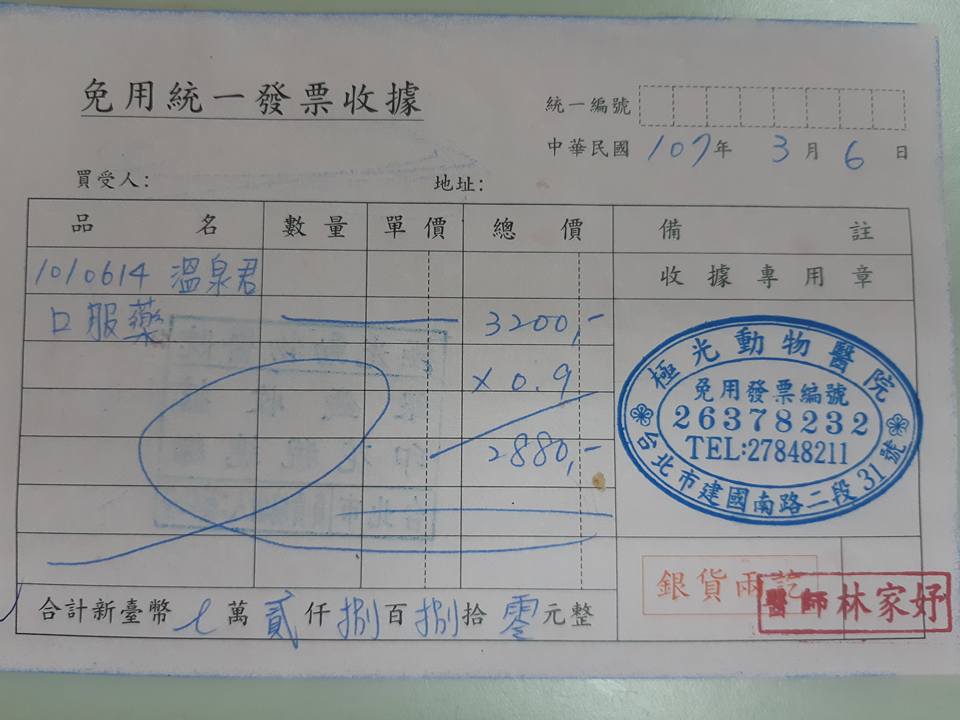 免用統一發票收據
統一編號
中華民國 107年 3月 6日
買受人: 地址:
品名 數量 單價 總價 備註
1010614 溫泉君 收據專用章
口服藥 3200,-
× 0.9
2880,-
極光動物醫院
免用發票編號
26378232
TEL:27848211
台北市建國南路二段31號
銀貨兩訖
醫師 林家妤
合計新臺幣 萬貳仟捌百捌拾零元整